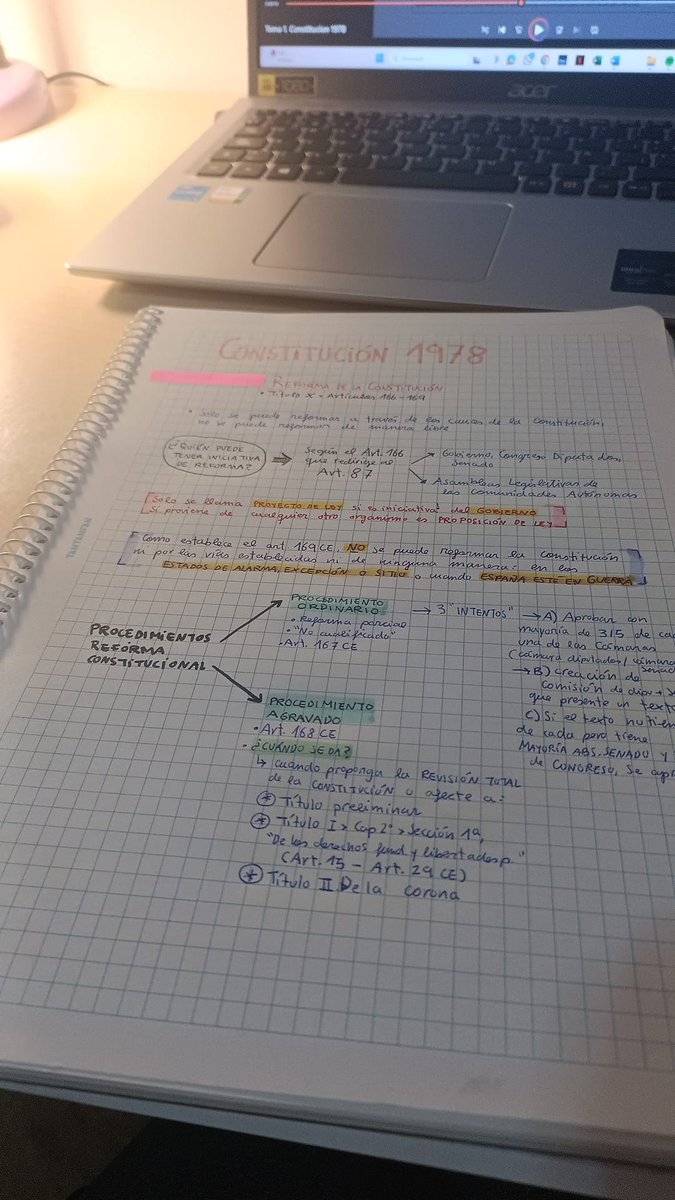 Tema 1. Constitucion 1978
acer
CONSTITUCIÓN 1978
REFORMA DE LA CONSTITUCIÓN
• Título X - Artículos 166 - 169
• Solo se puede reformar a través de los cauces de la Constitución,
no se puede reformar de manera libre
¿QUIÉN PUEDE
TENER INICIATIVA
DE REFORMA?
Según el Art. 166
que redirige al
Art. 87
Gobierno, Congreso Diputados,
Senado
Asambleas Legislativas de
las Comunidades Autónomas
Solo se llama PROYECTO DE LEY si es iniciativa del GOBIERNO
Si proviene de cualquier otro organismo es PROPOSICIÓN DE LEY
Como establece el art. 169 CE, NO se puede reformar la constitución
ni por las vías establecidas ni de ninguna manera: en los
ESTADOS DE ALARMA, EXCEPCIÓN O SITIO o cuando ESPAÑA ESTÉ EN GUERRA
PROCEDIMIENTOS
REFORMA
CONSTITUCIONAL
PROCEDIMIENTO
ORDINARIO
• Reforma parcial
• "No cualificada"
• Art. 167 CE
3 "INTENTOS"
A) Aprobar con
mayoría de 3/5 de cada
una de las Cámaras
(cámara diputados/cámara
B) Creación de
comisión de dipu +
que presente un texto
C) Si el texto no tiene
de cada pero tiene
MAYORÍA ABS. SENADO y
de CONGRESO, se
PROCEDIMIENTO
AGRAVADO
• Art. 168 CE
• ¿CUÁNDO SE DA?
↳ cuando proponga la REVISIÓN TOTAL
de la CONSTITUCIÓN o afecte a:
* Título preliminar
* Título I > Cap 2º > Sección 1ª,
"De los derechos fund y libertades p."
(Art. 15 - Art. 29 CE)
* Título II. De la corona